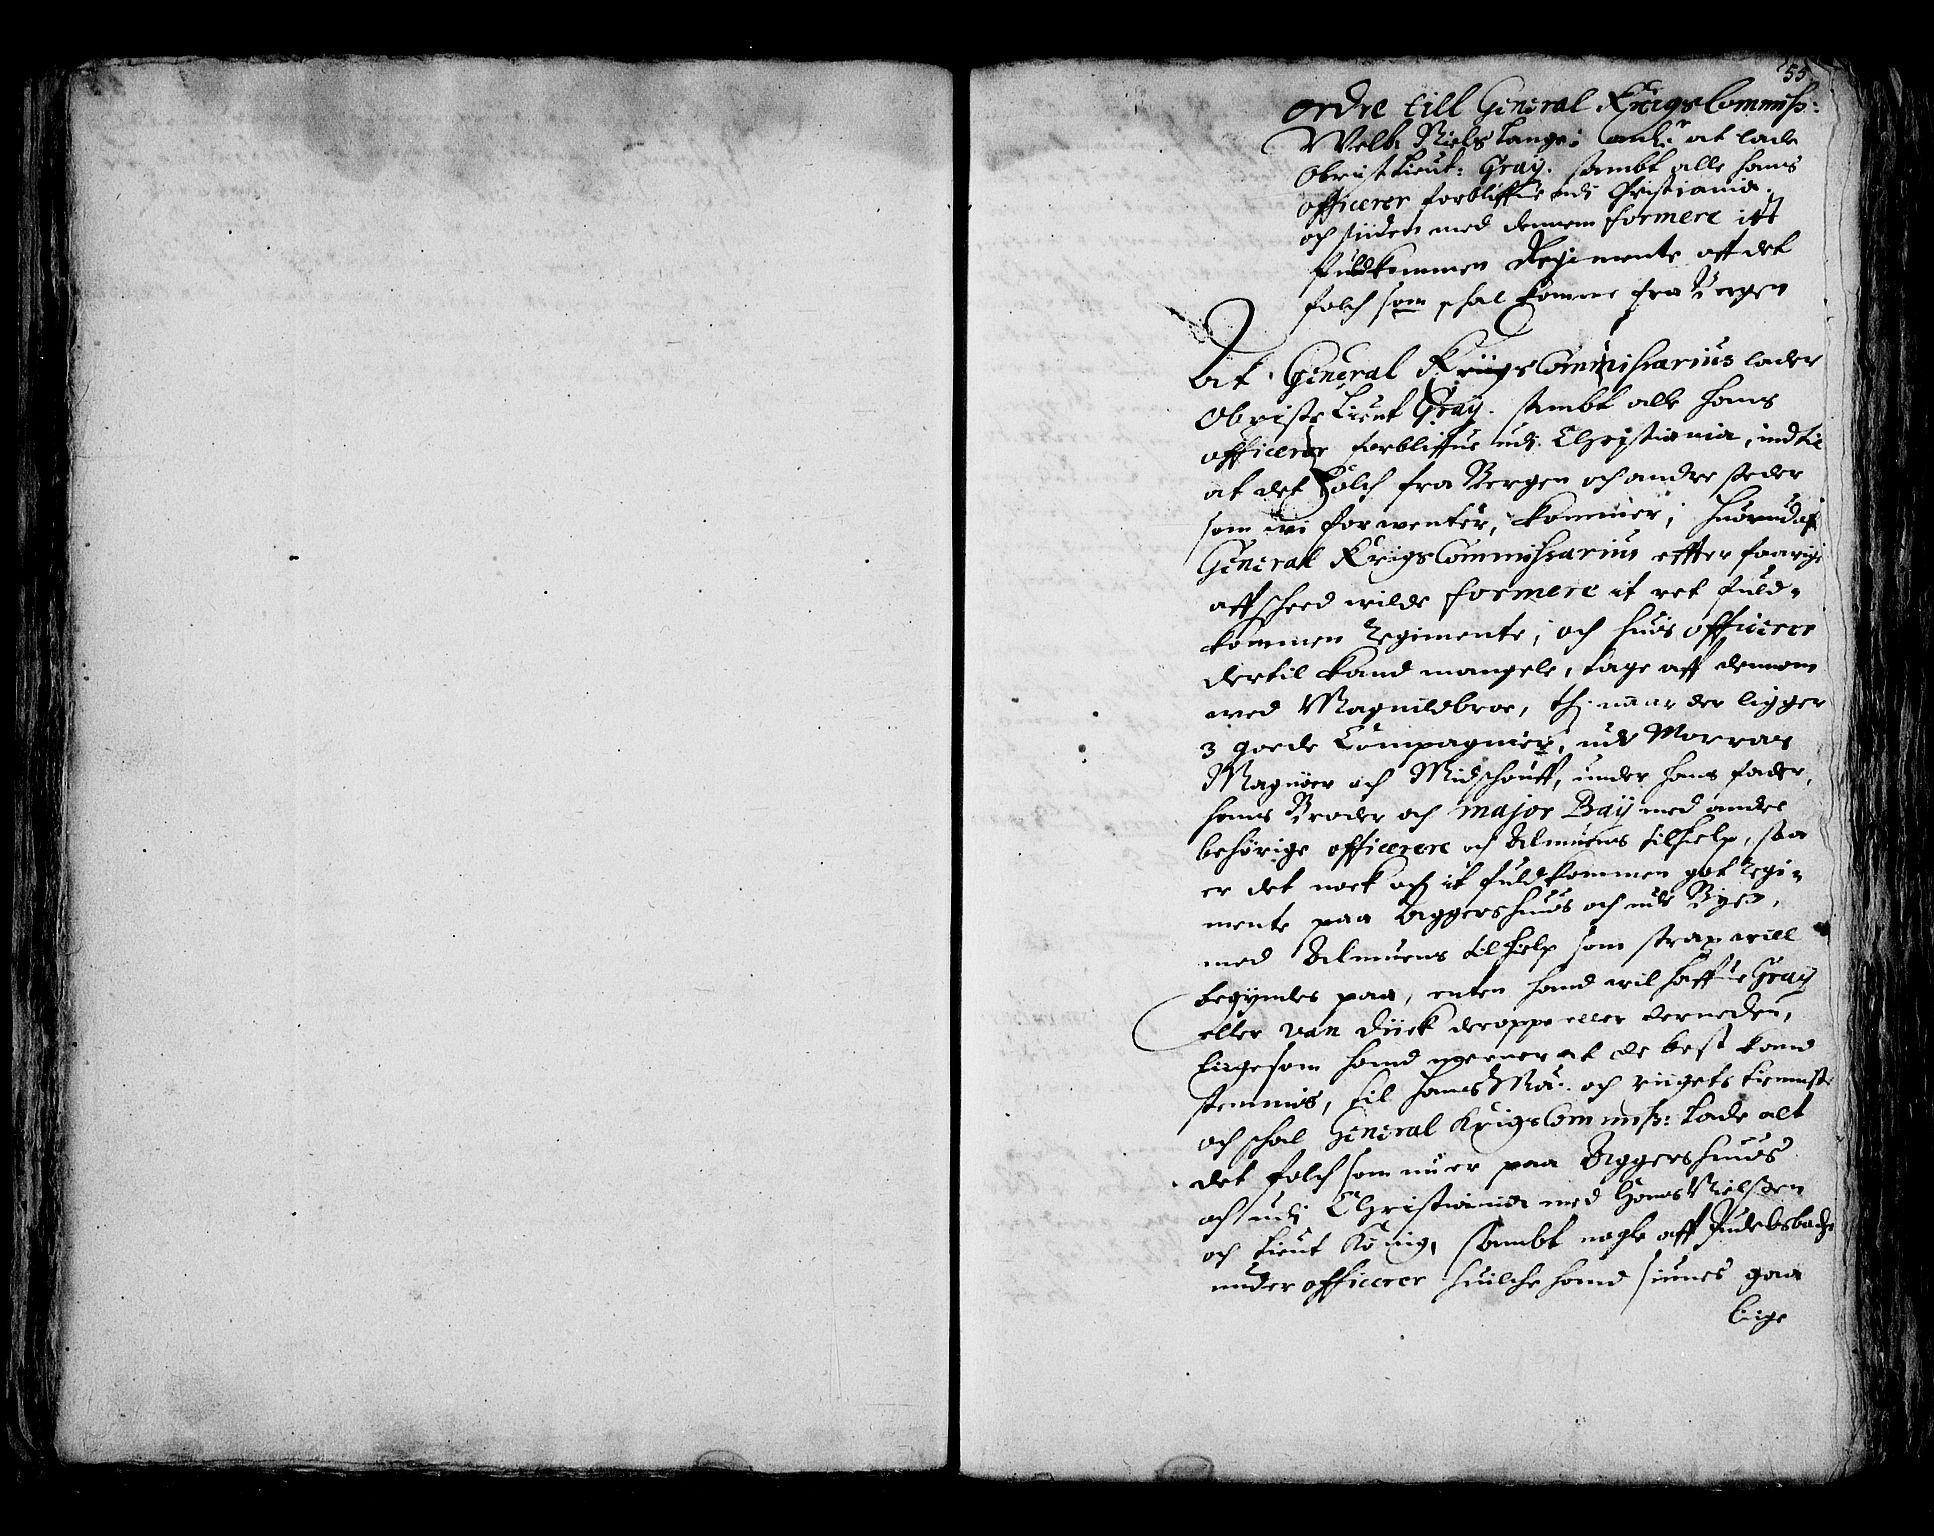 55
ordre till General Krigs Commiss:
Welb. Niels Lange; at lade
Obrist Lieut: Gray. sambt alle hans
officerer forbliffue udi Christiania.
och siiden med dennem formere itt
fuldkommen Regimente aff det
folch som schal komme fra Bergen
At General Kriigs Commissarius lader
Obriste Lieut Gray. sambt alle hans
officerer forbliffue udi Christiania, indtil
at det Folch fra Bergen och andre steder
som wi forwenter, kommer; huorudaf
General Krigs Commissarius effter faarige
affscheed wilde formere it ret fuld-
kommen Regimente; och huis officerer
dertil kand mangele, tage aff dennom
wed Magnildbroe, thi naar der ligger
3 goede Compagnier, udi Morras
Magnoer och Midschouff, under hans fader,
hans Broder och major Baij med andre
behörige officerere och Almuens tilhielp, saa
er det nock och it fuldkommen got Regi-
mente paa Aggershuus och udi Byen,
med Almuens tilhielp som strax will
begyndes paa, enten hand wil haffue Graij
eller van Diick deroppe eller derneden,
ligesom hand meener at de best kand
stemmis, til Hans Ma: och riigets tienniste
och schal General Krigs Commiss: lade alt
det folch som nu er paa Aggershuus
och udi Christiania med Hans Nielssen
och Lieut König, sambt nogle aff
under officerer huilche hand siunes gaa
liige